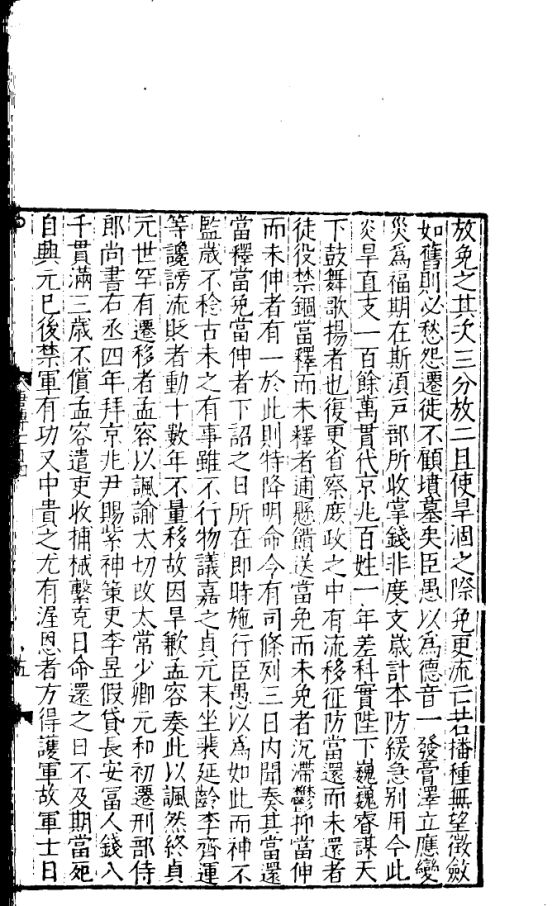 放免之其次三分放二且使旱涸之際免更流亡若播種無望徵斂
如舊則必愁怨遷徙不顧墳墓矣臣愚以爲德音一發膏澤立應變
災爲福期在斯須戸部所收掌錢非度支歳計本防緩急别用今此
炎旱直支一百餘萬貫代京兆百姓一年差科實陛下巍巍睿謀天
下鼓舞歌揚者也復更省察庶政之中有流移征防當還而未還者
徒役禁錮當釋而未釋者逋懸饋送當免而未免者沉滯鬱抑當伸
而未伸者有一於此則特降明命令有司條列三日内聞奏其當還
當釋當免當伸者下詔之日所在即時施行臣愚以爲如此而神不
監歳不稔古未之有事雖不行物議嘉之貞元末坐裴延齡李齊運
等讒謗流貶者動十數年不量移故因旱歉孟容奏此以諷然終貞
元世罕有遷移者孟容以諷諭太切改太常少卿元和初遷刑部侍
郎尚書右丞四年拜京兆尹賜紫神策吏李昱假貸長安冨人錢八
千貫滿三歳不償孟容遣吏收捕械繫克日命還之曰不及期當死
自興元已後禁軍有功又中貴之尤有渥恩者方得護軍故軍士日
五